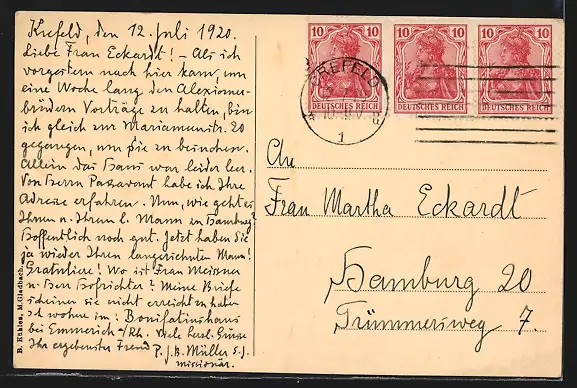 Krefeld, den 12. Juli 1920.
Liebe Frau Eckardt! – Als ich
vorgestern nach hier kam, um
eine Woche lang den Alexianer-
brüdern Vorträge zu halten, bin
ich gleich zur Mariannenstr. 20
gegangen, um Sie zu besuchen.
Allein das Haus war leider leer.
Von Herrn Passavant habe ich Ihre
Adresse erfahren. Nun, wie geht es
Ihnen u. Ihrem l. Mann in Hamburg?
Hoffentlich noch gut. Jetzt haben Sie
ja wieder Ihren langersehnten Mann!
Gratuliere! Wo ist Frau Meissner
u. Herr Hofrichter? Meine Briefe
scheinen sie nicht erreicht zu haben
Ich wohne im: Bonifatiushaus
bei Emmerich a/Rh. Viele herzl. Grüsse
Ihr ergebenster Freund P. J. B. Müller S. J.
missionar.
B. Kühlen, M.Gladbach.
10 10 10 10 10 10
DEUTSCHES REICH DEUTSCHES REICH DEUTSCHES REICH
CREFELD
1
An
Frau Martha Eckardt
Hamburg 20
Trümmersweg 7.